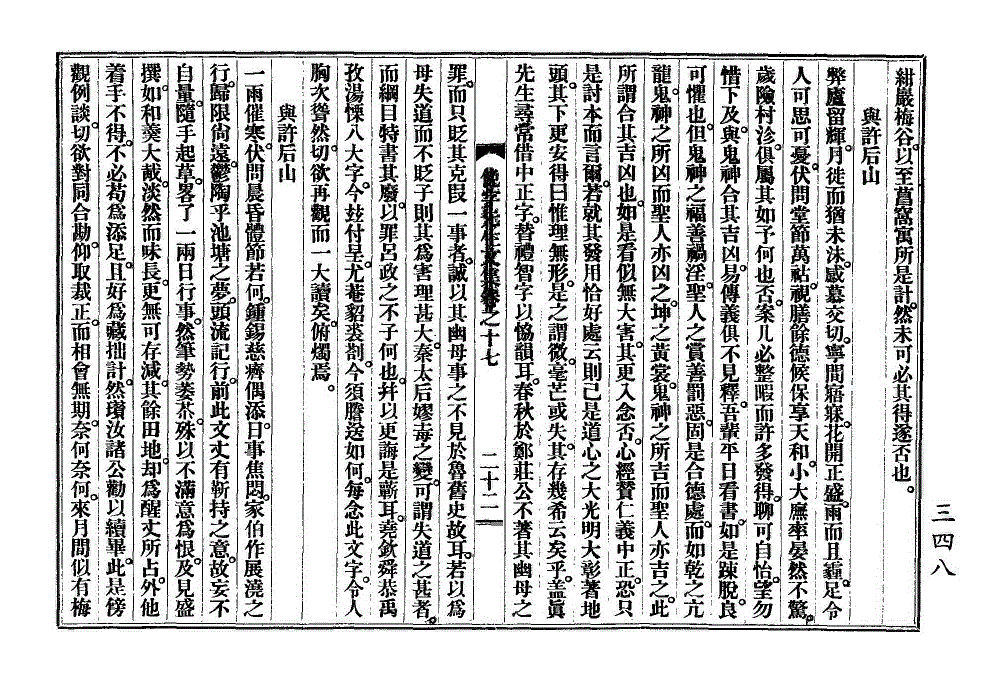 紺巖梅谷。以至菖窩寓所是計。然未可必其得遂否也。
與許后山
弊廬留輝。月徙而猶未沬。感慕交切。寧間寤寐。花開正盛。雨而且霾。足令
人可思可憂。伏問堂節萬祜。視膳餘德候保享天和。小大廡率晏然不驚。
歲險村沴。俱屬其如予何也否。案几必整暇而許多發得。聊可自怡。望勿
惜下及。與鬼神合其吉凶。易傳義俱不見釋。吾輩平日看書。如是踈脫。良
可懼也。但鬼神之福善禍淫。聖人之賞善罰惡。固是合德處。而如乾之亢
龍。鬼神之所凶而聖人亦凶之。坤之黃裳。鬼神之所吉而聖人亦吉之。此
所謂合其吉凶也。如是看似無大害。其更入念否。心經贊仁義中正。恐只
是討本而言爾。若就其發用恰好處云則已是道心之大光明大彰著地
頭。其下更安得曰惟理無形。是之謂微。毫芒或失。其存幾希云矣乎。盖眞
先生尋常借中正字。替禮智字以恊韻耳。春秋於鄭莊公不著其幽母之
之十七
二十二
罪。而只貶其克段一事者。誠以其幽母事之不見於魯舊史故耳。若以爲
母失道而不貶子則其爲害理甚大。秦太后嫪毐之變。可謂失道之甚者。
而綱目特書其廢。以罪呂政之不子何也。幷以更誨是蘄耳。堯欽舜恭禹
孜湯慄八大字。今玆付呈尤菴貂裘剳。今須謄送如何。每念此文字。令人
胸次聳然。切欲再觀而一大讀矣。俯燭焉。
與許后山
一雨催寒。伏問晨昏體節若何。鍾錫慈癠偶添。日事焦悶。家伯作展澆之
行。歸限尙遠。鬱陶乎池塘之夢。頭流記行。前此文丈有斬持之意。故妄不
自量。隨手起草。畧了一兩日行事。然筆勢萎苶。殊以不滿意爲恨。及見盛
撰。如和羹大胾。淡然而味長。更無可存減。其餘田地。却爲醒丈所占。外他
着手不得。不必苟爲添足。且好爲藏拙計。然瓚汝諸公勸以續畢。此是傍
觀例談。切欲對同合勘。仰取裁正。而相會無期。奈何奈何。來月間似有梅
三四八